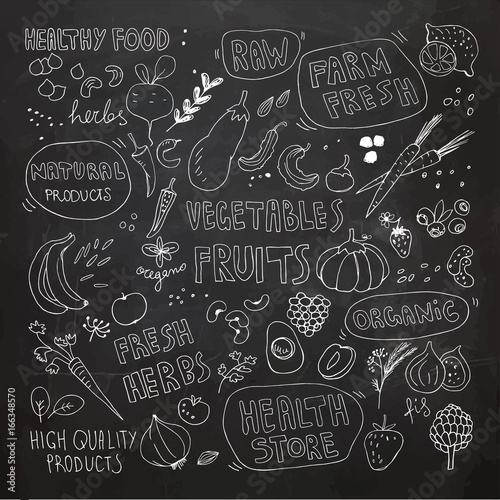 HEALTHY FOOD
RAW
FARM
FRESH
herbs
NATURAL
PRODUCTS
VEGETABLES
FRUITS
oregano
ORGANIC
FRESH
HERBS
HEALTH
STORE
fis
HIGH QUALITY
PRODUCTS
166348570